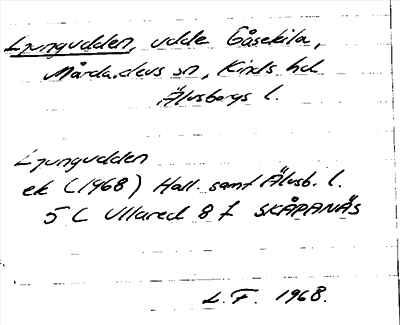 Ljungudden, udde Gåsekila,
Mårdaklevs sn, Kinds hd
Älvsborgs l.
Ljungudden
ek (1968) Hall. samt Älvsb. l.
5 C Ullared 8 f SKÅPANÄS
L.F. 1968.